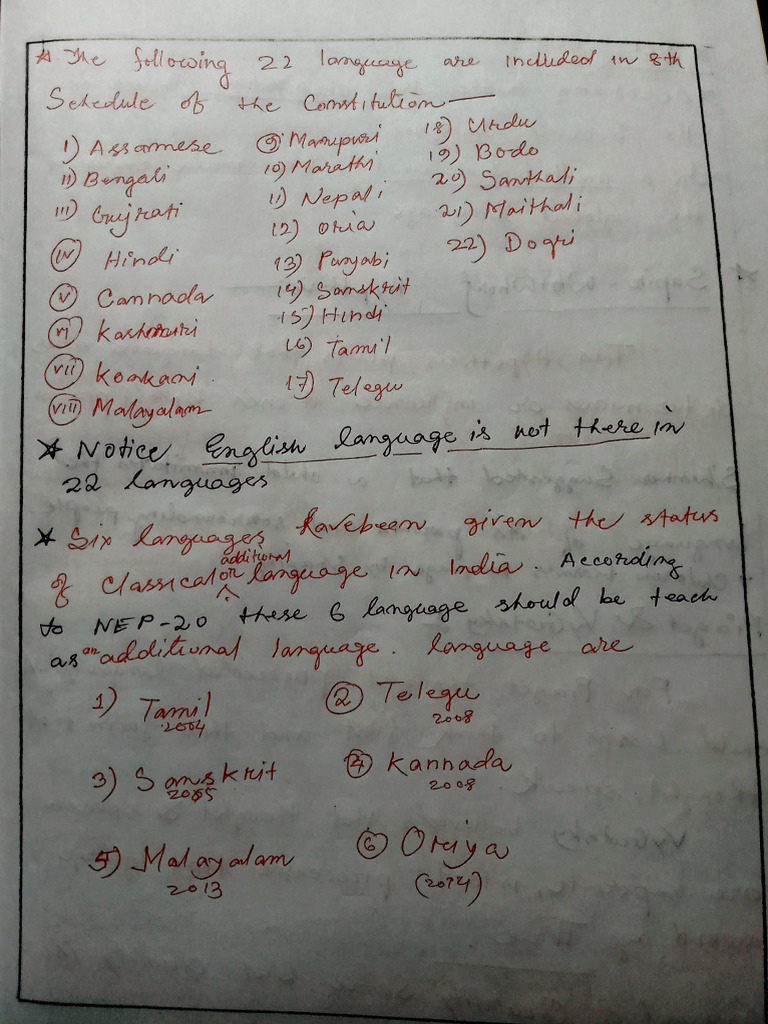 * The following 22 language are included in 8th
Schedule of the Constitution —
i) Assamese
ii) Bengali
iii) Gujrati
iv) Hindi
v) Cannada
vi) Kashmiri
vii) Konkani.
viii) Malayalam
9) Manupuri
10) Marathi
11) Nepali
12) Oria
13) Punjabi
14) Sanskrit
15) Hindi
16) Tamil
17) Telegu
18) Urdu
19) Bodo
20) Santhali
21) Maithali
22) Dogri
* Notice English language is not there in
22 languages
* Six languages havebeen given the status
of classical or additional language in India. According
to NEP-20 these 6 language should be teach
as an additional language. language are
1) Tamil
2004
2) Telegu
2008
3) Sanskrit
2005
4) Kannada
2008
5) Malayalam
2013
6) Oriya
(2014)